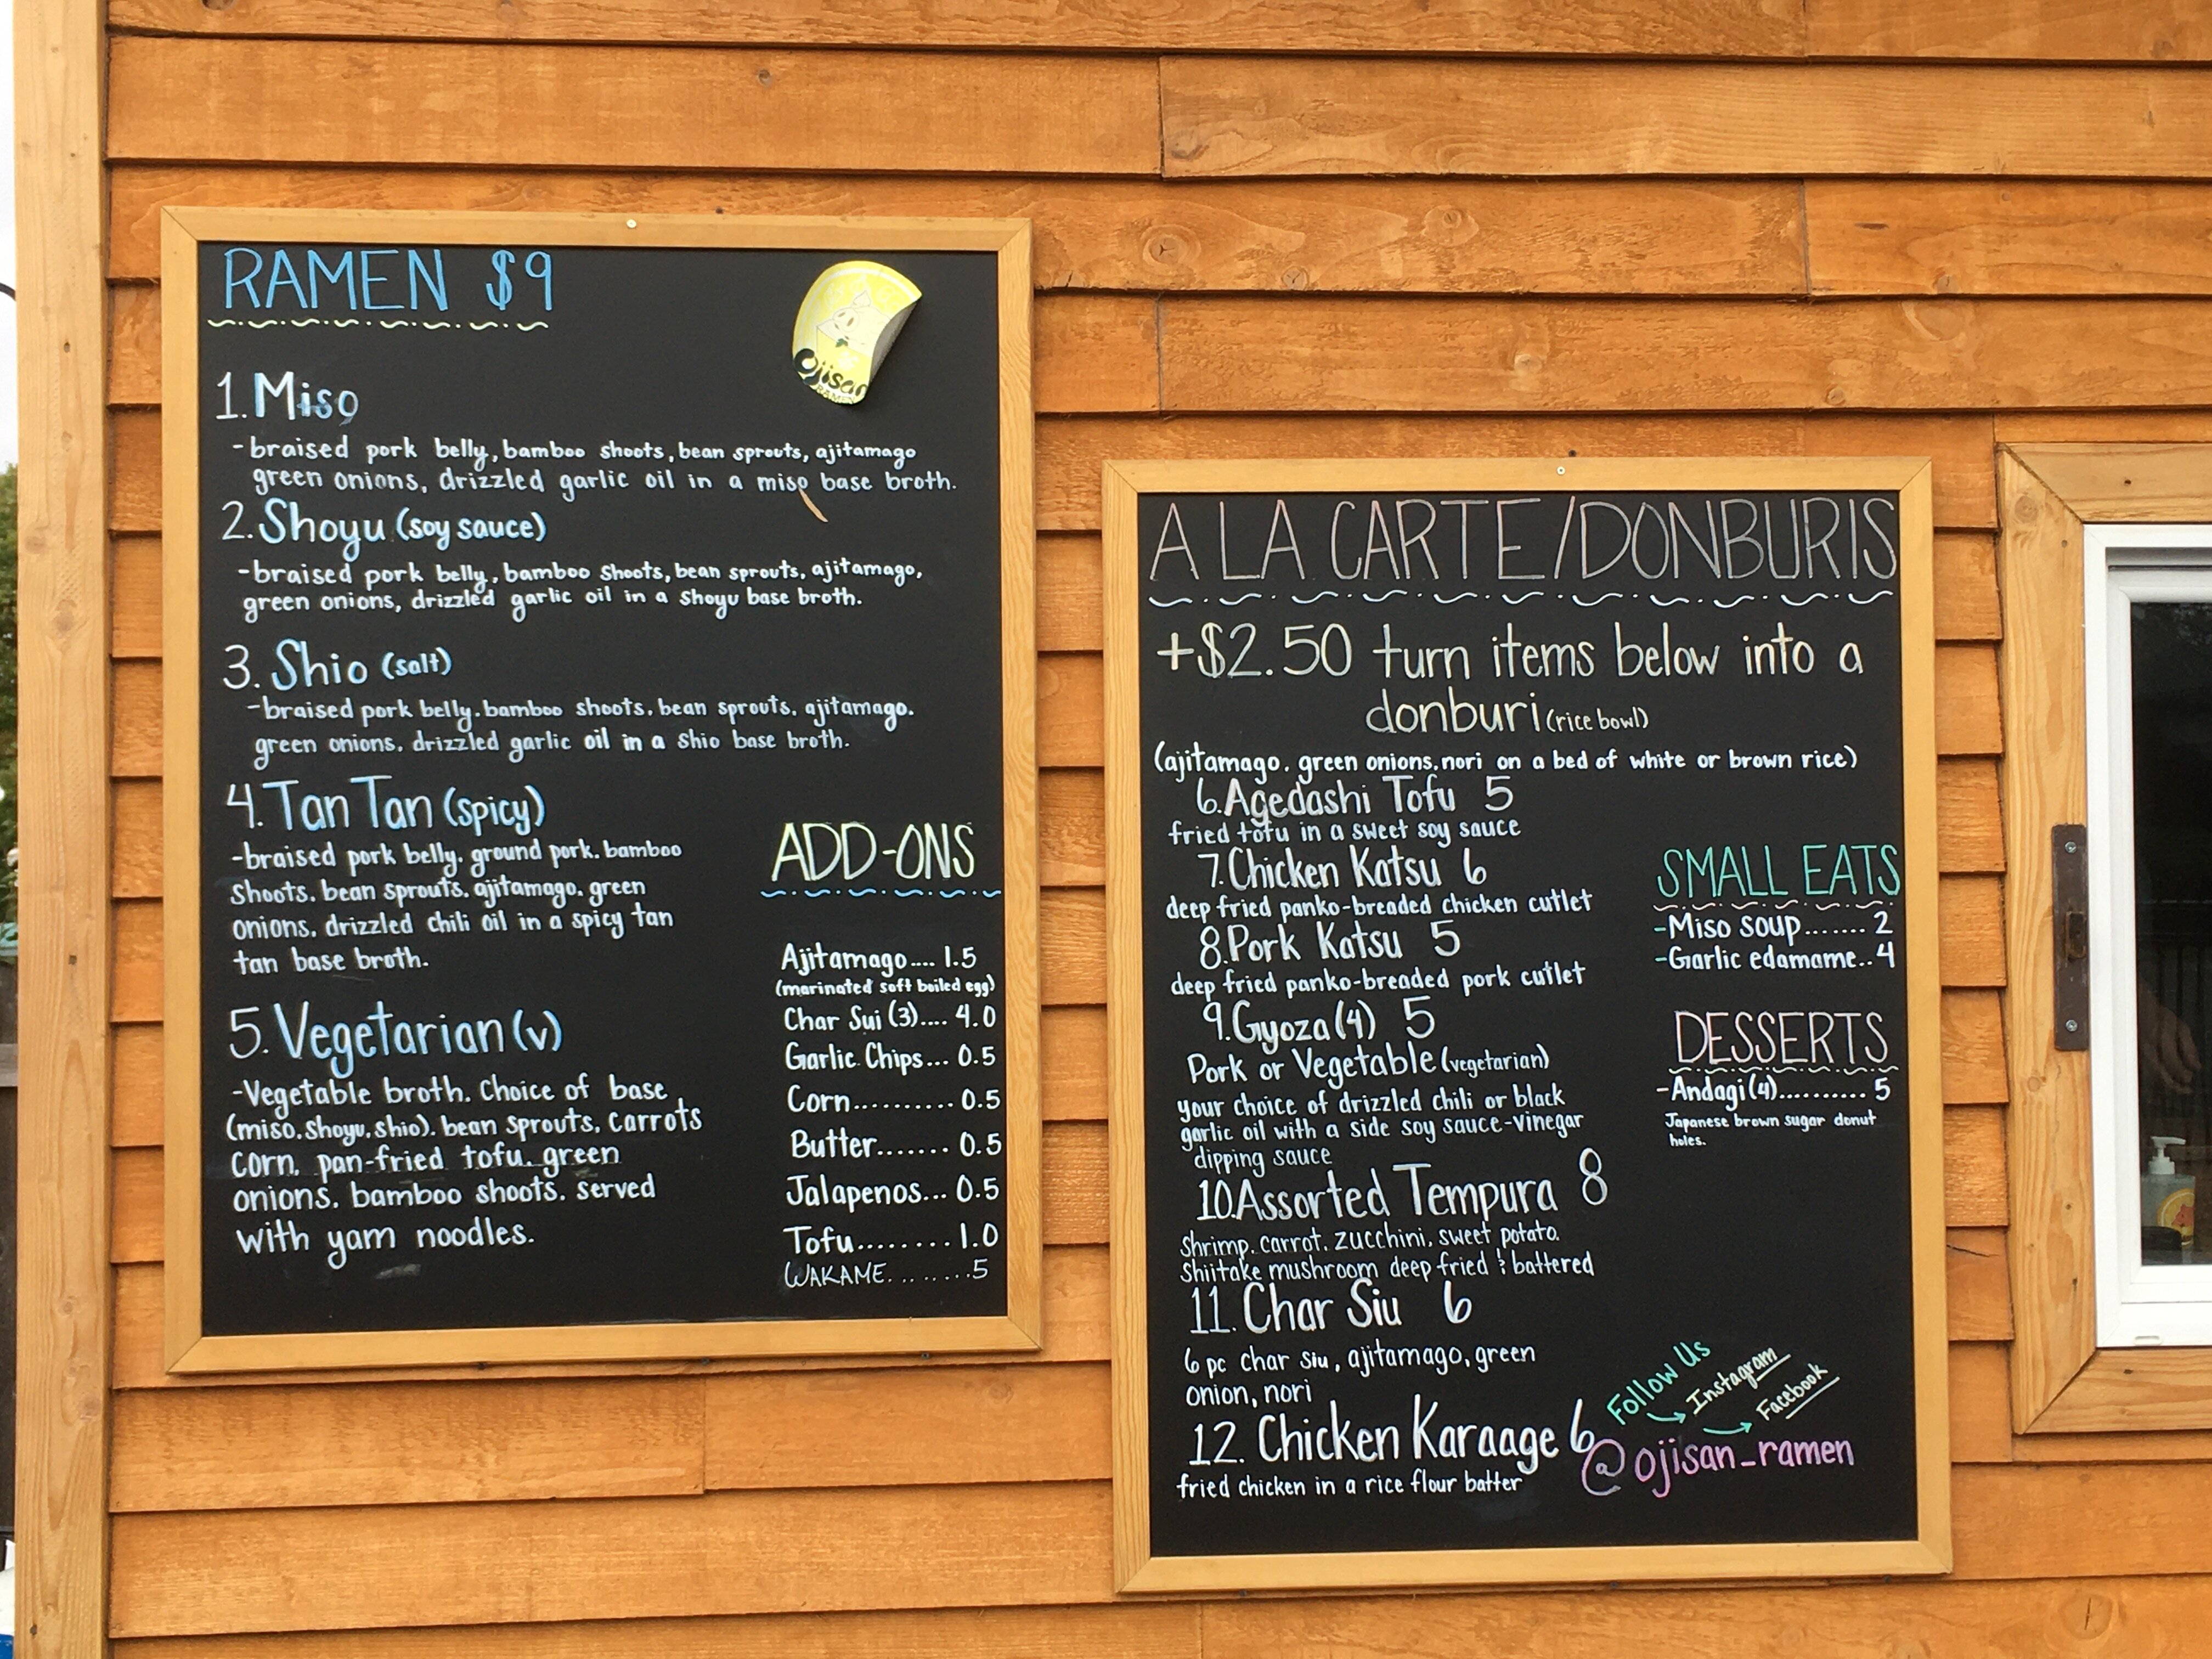 RAMEN $9
Ojisan
RAMEN
1. Miso
-braised pork belly, bamboo shoots, bean sprouts, ajitamago
green onions, drizzled garlic oil in a miso base broth.
2. Shoyu (soy sauce)
-braised pork belly, bamboo shoots, bean sprouts, ajitamago,
green onions, drizzled garlic oil in a shoyu base broth.
3. Shio (salt)
-braised pork belly. bamboo shoots. bean sprouts. ajitamago.
green onions. drizzled garlic oil in a shio base broth.
4. Tan Tan (spicy)
-braised pork belly. ground pork. bamboo
shoots. bean sprouts. ajitamago. green
onions. drizzled chili oil in a spicy tan
tan base broth.
5. Vegetarian (v)
-Vegetable broth. Choice of base
(miso. shoyu. shio). bean sprouts. carrots
corn. pan-fried tofu. green
onions. bamboo shoots. served
with yam noodles.
ADD-ONS
Ajitamago.... 1.5
(marinated soft boiled egg)
Char Sui (3).... 4.0
Garlic Chips... 0.5
Corn.......... 0.5
Butter....... 0.5
Jalapenos... 0.5
Tofu......... 1.0
WAKAME........ .5
A LA CARTE/DONBURIS
+$2.50 turn items below into a
donburi (rice bowl)
(ajitamago. green onions. nori on a bed of white or brown rice)
6. Agedashi Tofu 5
fried tofu in a sweet soy sauce
7. Chicken Katsu 6
deep fried panko-breaded chicken cutlet
8. Pork Katsu 5
deep fried panko-breaded pork cutlet
9. Gyoza (4) 5
Pork or Vegetable (vegetarian)
your choice of drizzled chili or black
garlic oil with a side soy sauce-vinegar
dipping sauce
10. Assorted Tempura 8
shrimp. carrot. zucchini. sweet potato.
Shiitake mushroom deep fried & battered
11. Char Siu 6
6 pc char siu, ajitamago, green
onion, nori
12. Chicken Karaage 6
fried chicken in a rice flour batter
SMALL EATS
-Miso soup....... 2
-Garlic edamame.. 4
DESSERTS
-Andagi (4).......... 5
Japanese brown sugar donut
holes.
Follow Us
Instagram
Facebook
@ojisan_ramen